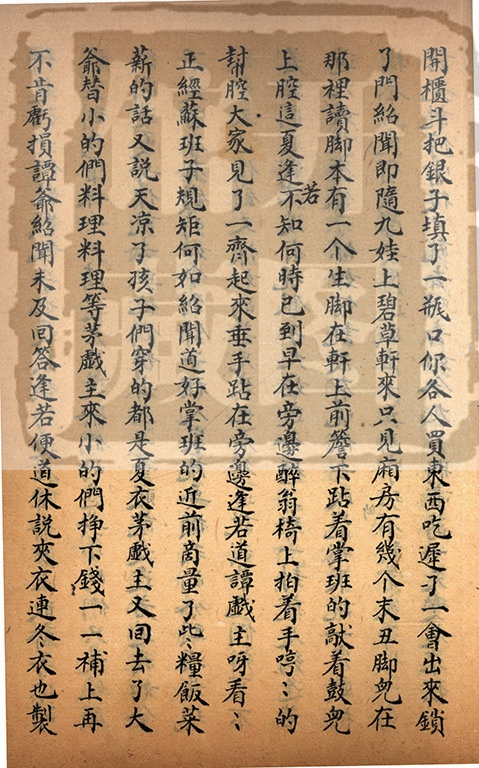 開櫃斗把銀子填了一瓶口你各人買東西吃遲了一會出來鎖
了門紹聞即隨九娃上碧草軒來只見廂房有幾个末丑脚兒在
那裡讀脚本有一个生脚在軒上前簷下跕着掌班的敲着鼓兒
上腔這夏逢若不知何時已到早在旁邊醉翁椅上拍着手哼〻的
幫腔大家見了一齊起來垂手跕在旁邊逢若道譚戲主呀看〻
正經蘇班子規矩何如紹聞道好掌班的近前啇量了些〻糧飯菜
薪的話又説天凉了孩子們穿的都是夏衣茅戲主又回去了大
爺替小的們料理料理等茅戲主來小的們掙下錢一一補上再
不肯虧損譚爺紹聞未及回答逢若便道休説夾衣連冬衣也製